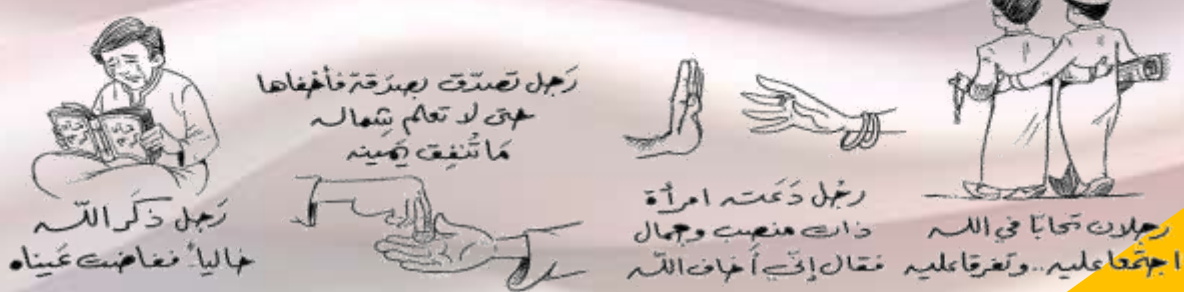 رجلان تحابّا في اللـه
اجتمعا عليه..وتفرقا عليه
رجُل دَعَته امرأة
ذات منصب وجمال
فقال إنّي أَخاف اللّـه
رَجل تصدّق بصَدَقة فأخفاها
حتى لا تعلم شِماله
مَا تُنفِق يَمينه
رَجل ذكَر اللّـه
خالياً ففاضت عَيناه